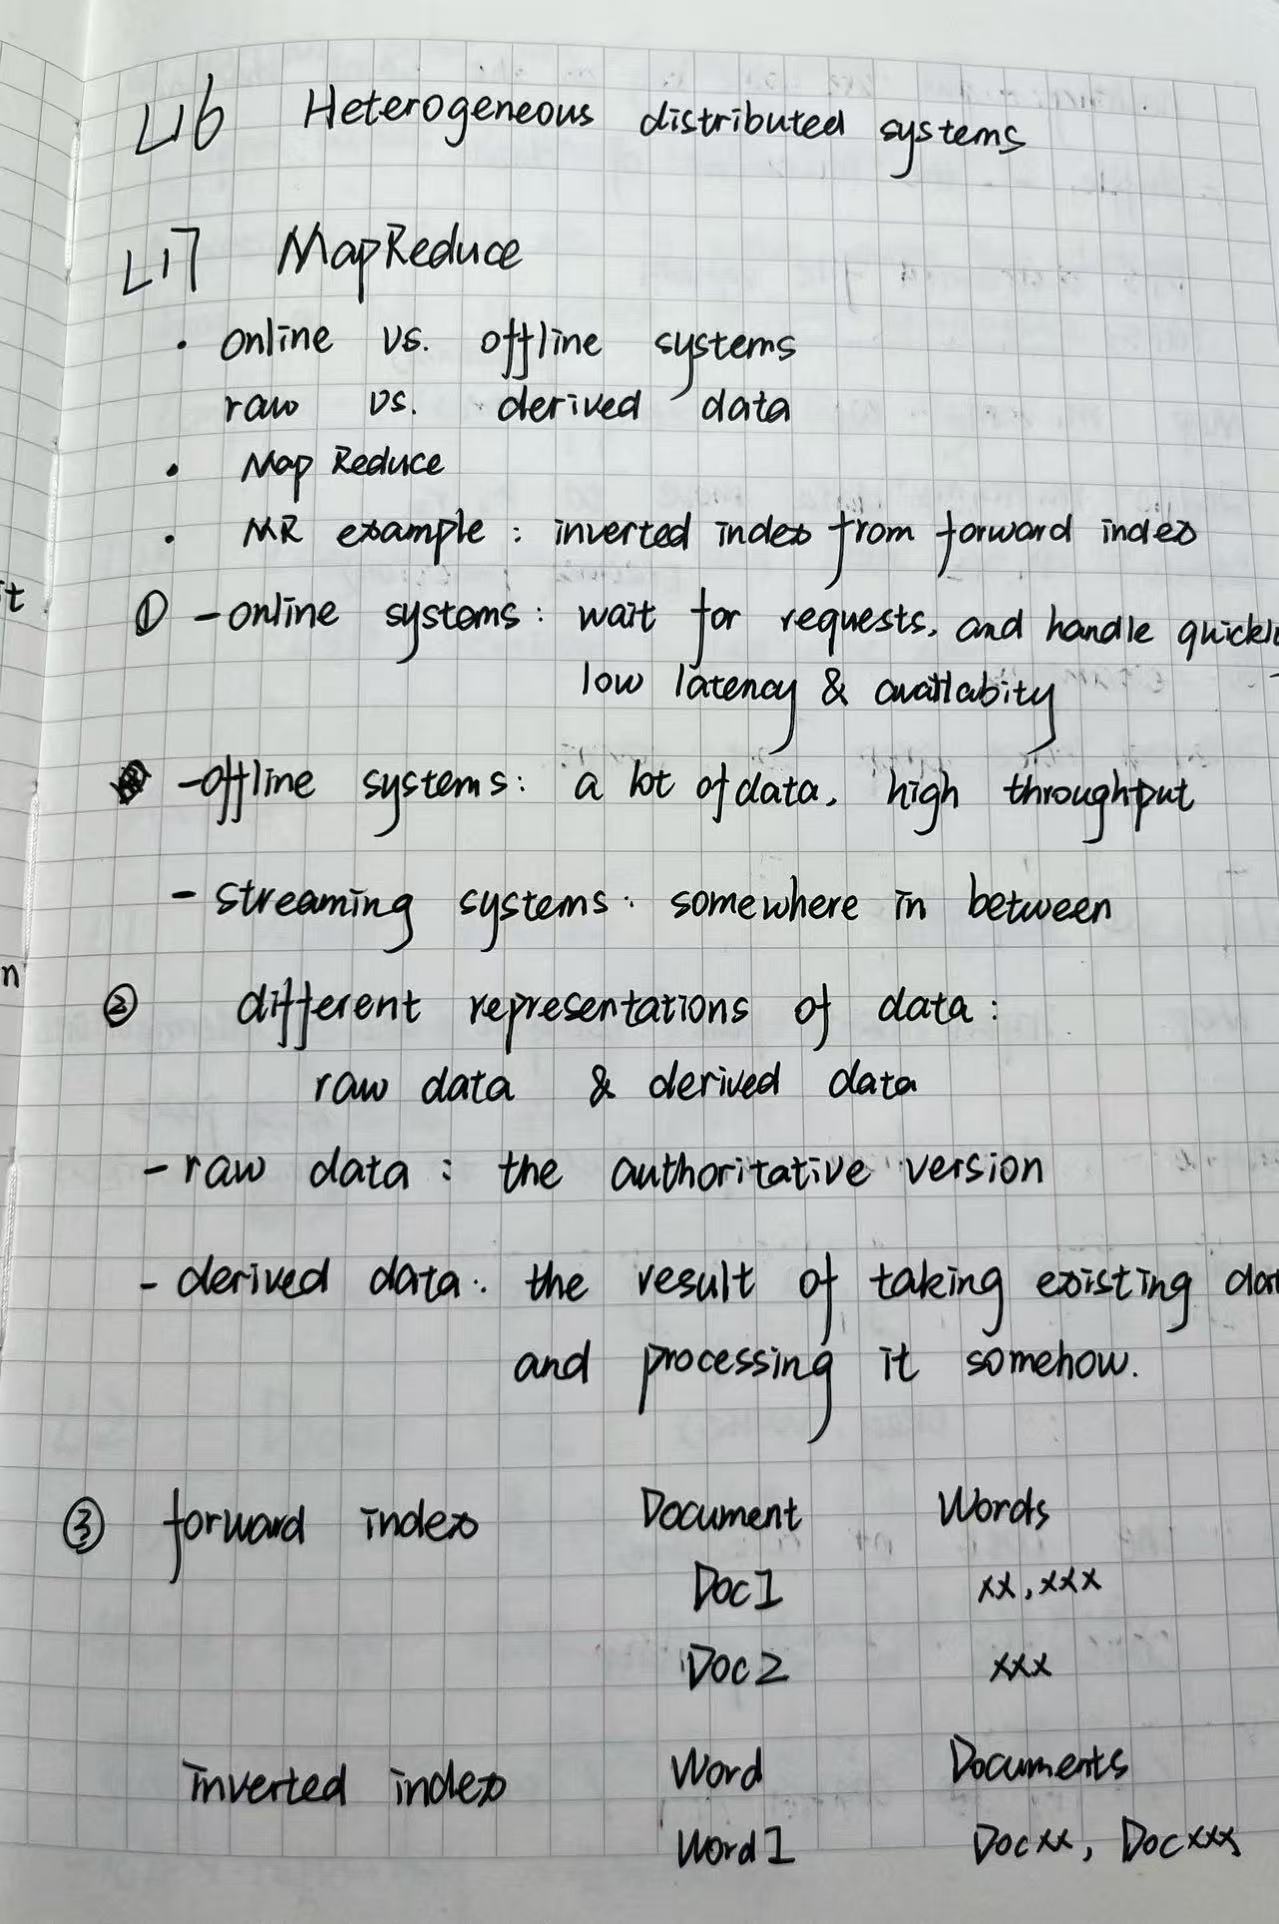 L16 Heterogeneous distributed systems
L17 MapReduce
· online vs. offline systems
raw vs. derived data
· Map Reduce
· MR example : inverted index from forward index
it
① - online systems : wait for requests, and handle quickly
low latency & availabity
- offline systems : a lot of data, high throughput
- streaming systems : somewhere in between
n
② different representations of data :
raw data & derived data
- raw data : the authoritative version
- derived data : the result of taking existing dat
and processing it somehow.
③ forward index Document Words
Doc1 xx, xxx
Doc2 xxx
inverted index Word Documents
Word1 Docxx, Docxxx